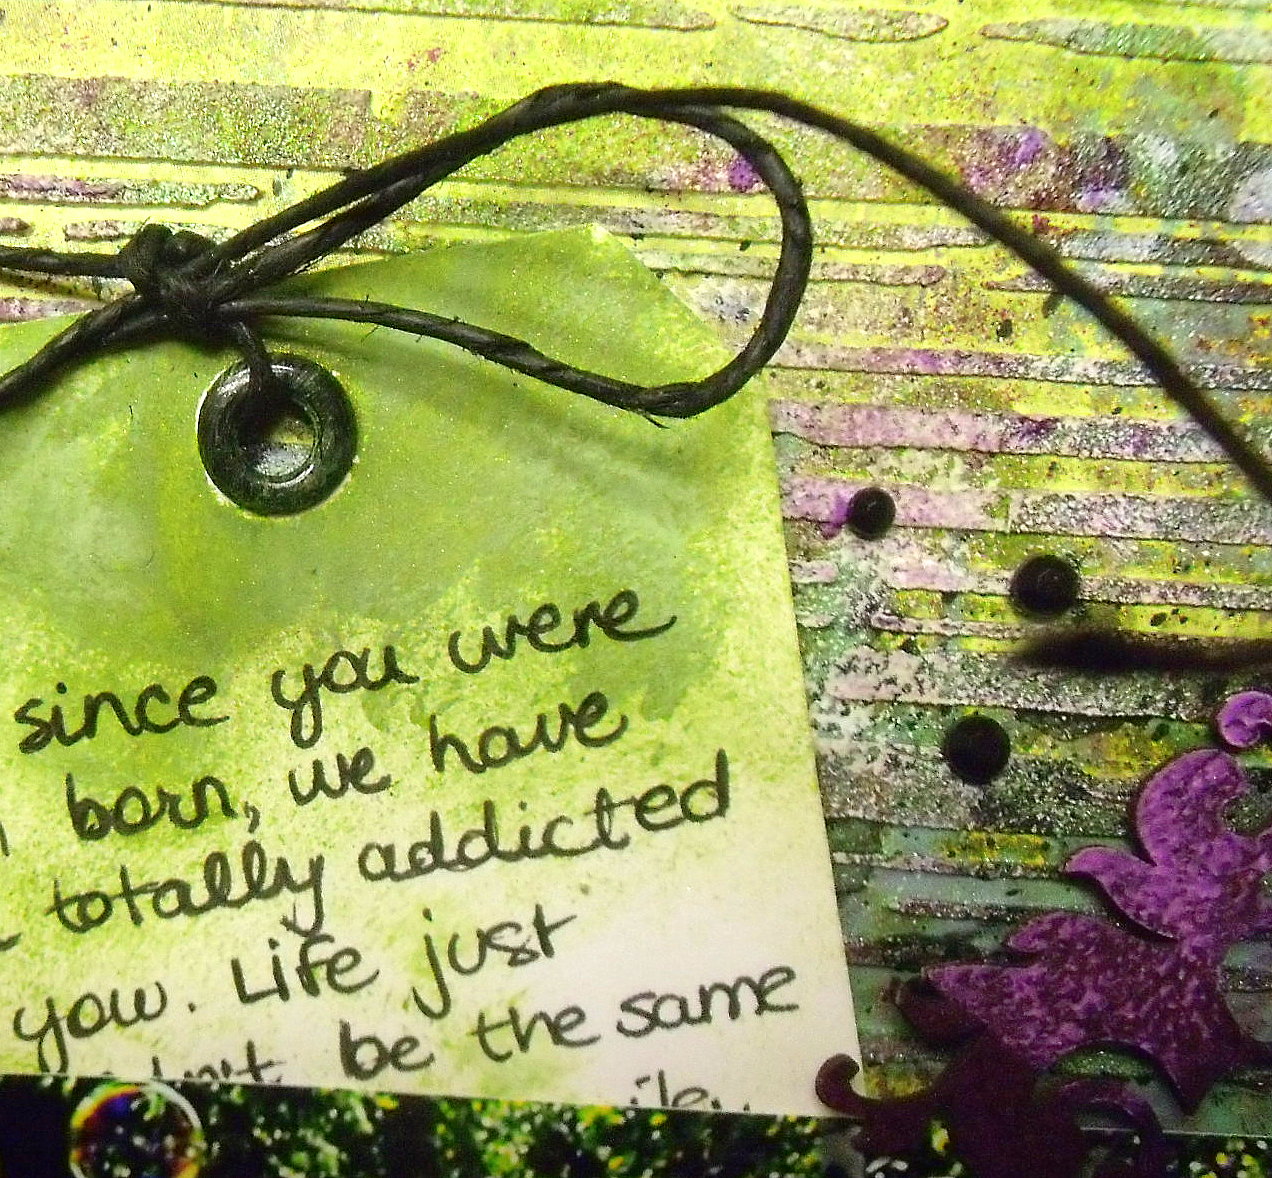 since you were
born, we have
totally addicted
you. Life just
be the same